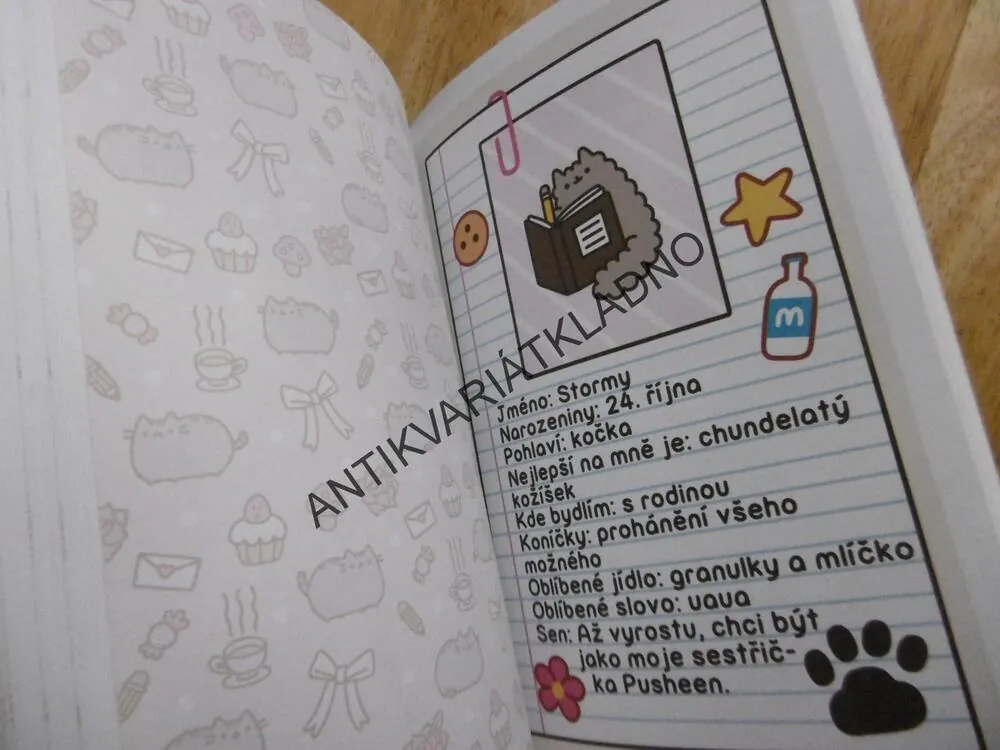 Jméno: Stormy
Narozeniny: 24. října
Pohlaví: kočka
Nejlepší na mně je: chundelatý
kožíšek
Kde bydlím: s rodinou
Koníčky: prohánění všeho
možného
Oblíbené jídlo: granulky a mlíčko
Oblíbené slovo: uaua
Sen: Až vyrostu, chci být
jako moje sestřič-
ka Pusheen.
m
ANTIKVARIÁTKLADNO